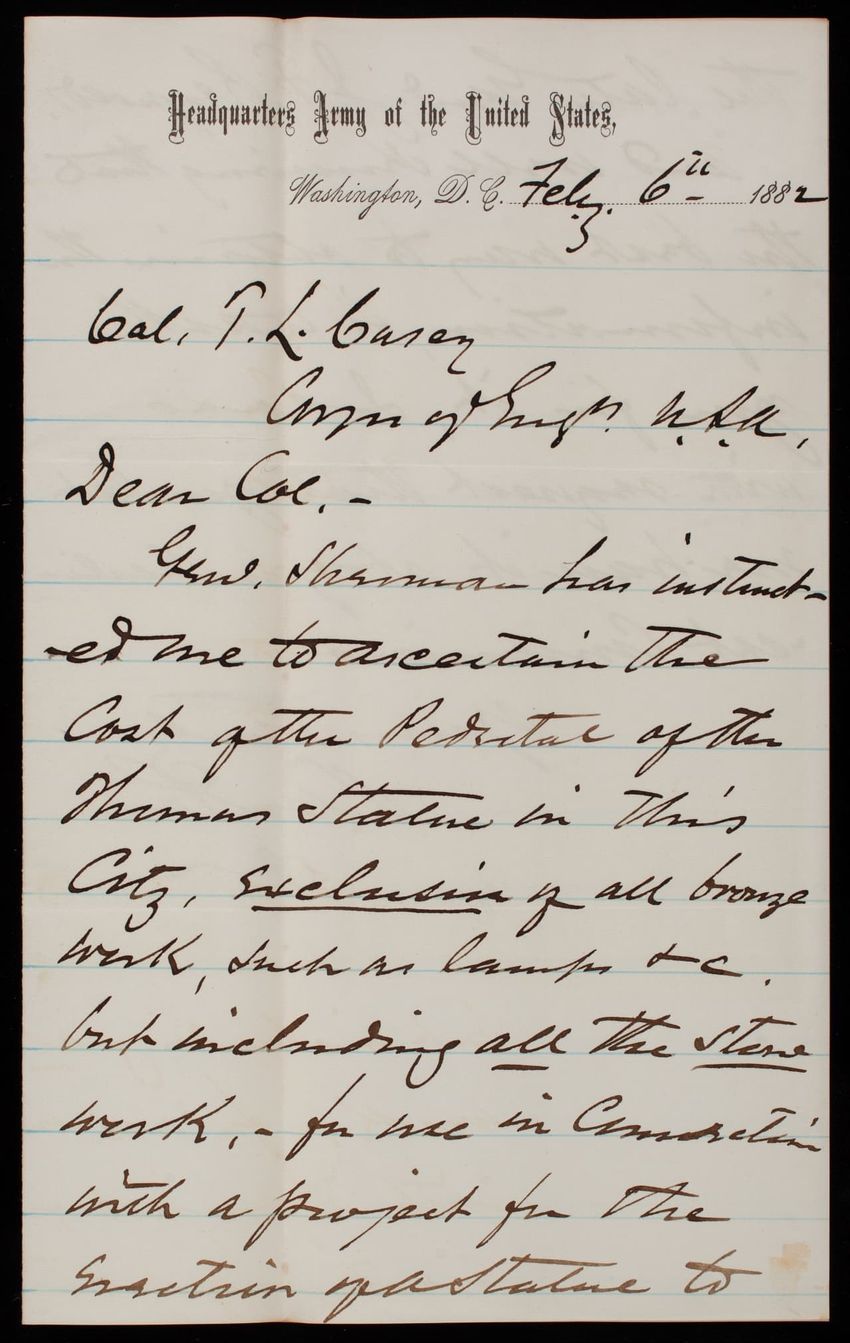 Headquarters Army of the United States,
Washington, D.C. Feby. 6th 1882
Col. T. L. Casey
Corps of Engrs. U.S.A.,
Dear Col. -
Genl. Sherman has instruct-
-ed me to ascertain the
Cost of the Pedestal of the
Thomas Statue in this
City, exclusive of all bronze
work, such as lamps &c.
but including all the stone
work, - for use in Connection
with a project for the
erection of a Statue to